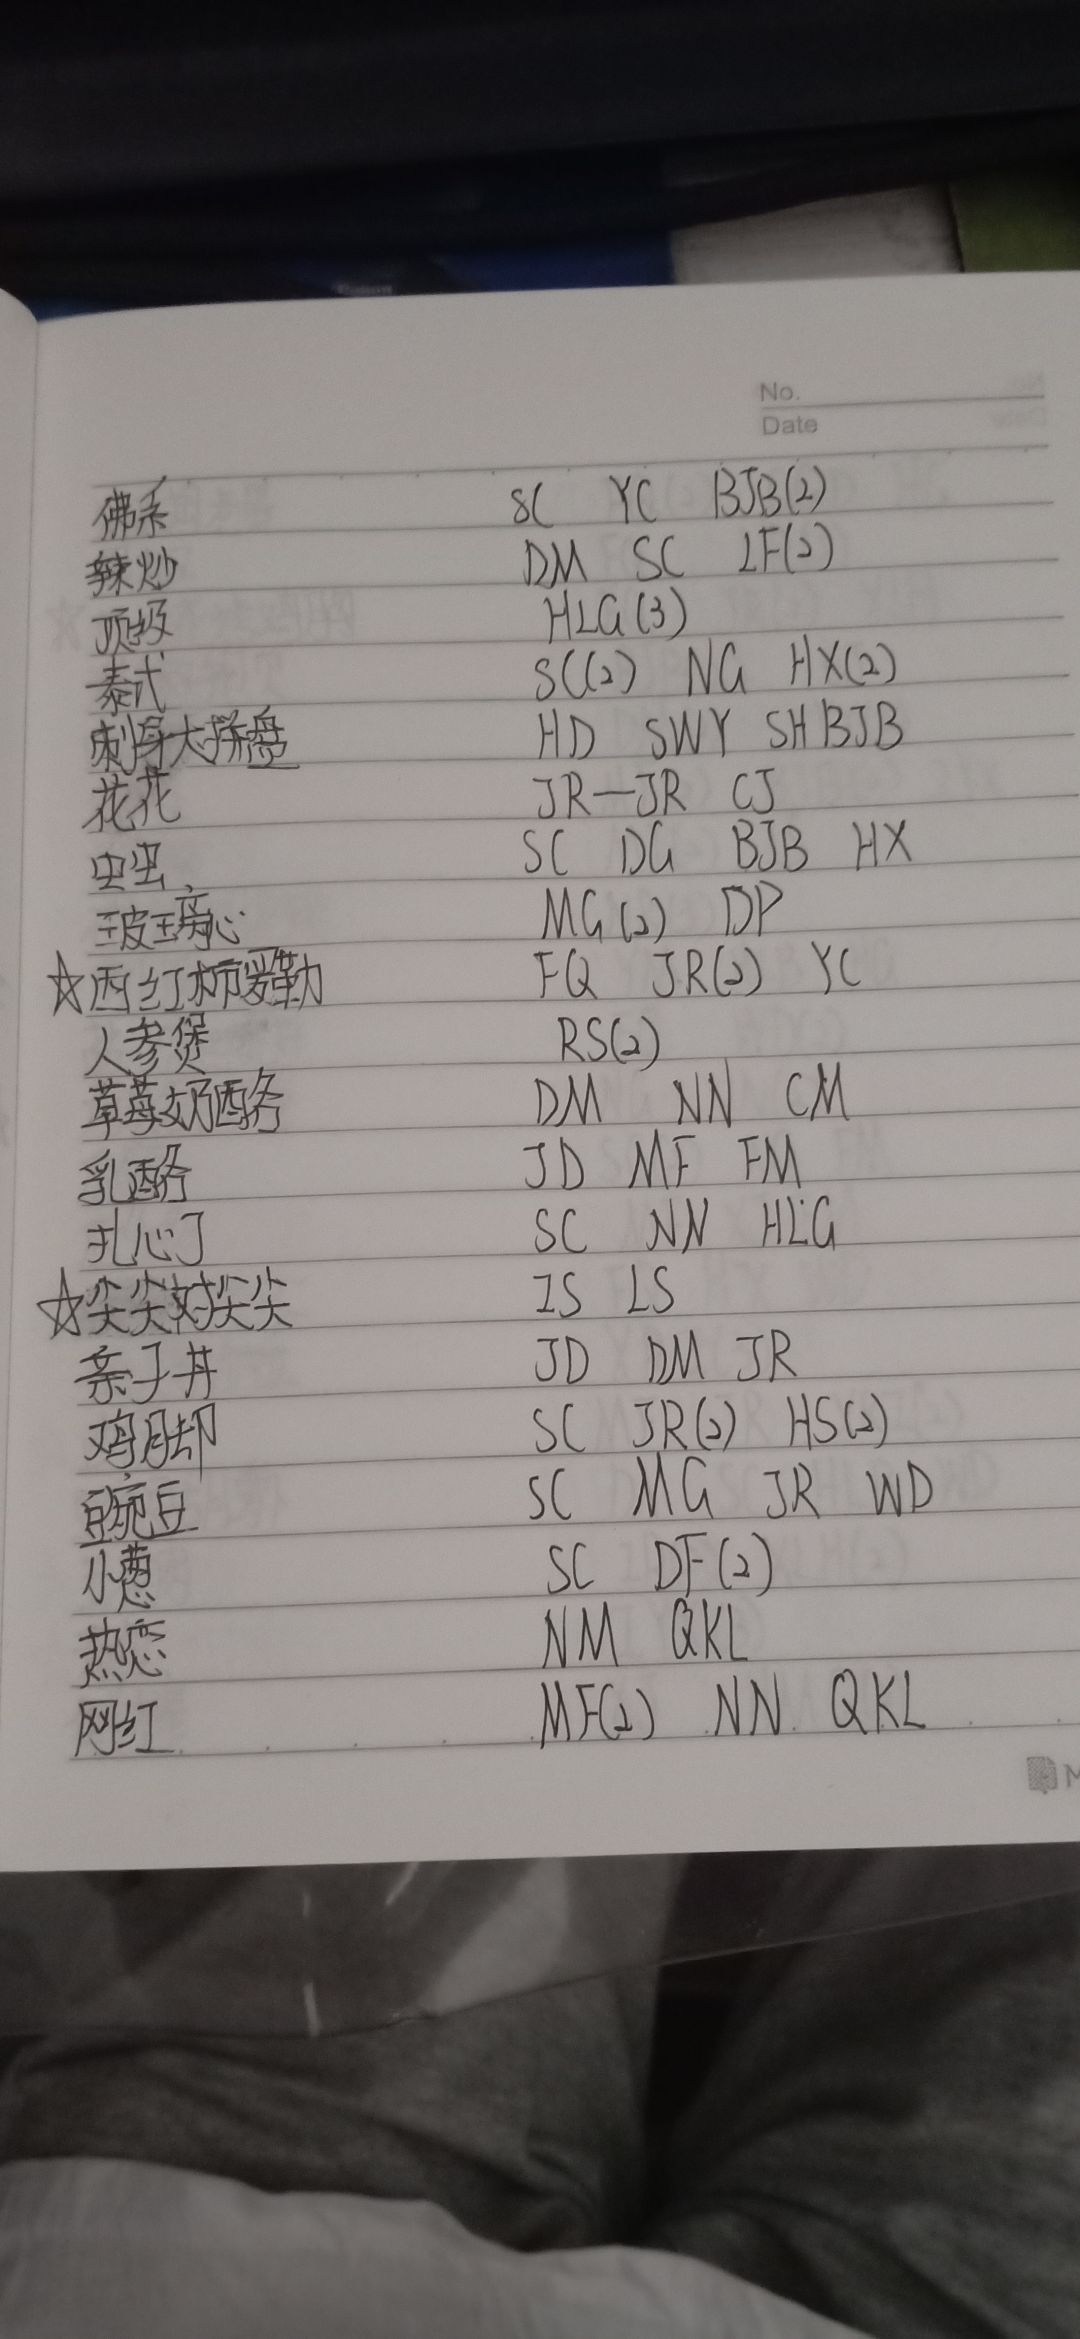 No.
Date
佛系 SC YC BJB(2)
辣炒 DM SC LF(2)
顶级 HLG(3)
泰式 SC(2) NG HX(2)
刺身大拼盘 HD SWY SH BJB
花花 JR—JR CJ
虫虫 SC DG BJB HX
玻璃心 MG(2) DP
☆西红柿爱勒 FQ JR(2) YC
人参煲 RS(2)
草莓奶酪 DM NN CM
乳酪 JD MF FM
扎心了 SC NN HLG
☆尖尖对尖尖 IS LS
亲子丼 JD DM JR
鸡脚 SC JR(2) HS(2)
豌豆 SC MG JR WD
小葱 SC DF(2)
热恋 NM QKL
网红 MF(2) NN QKL
M